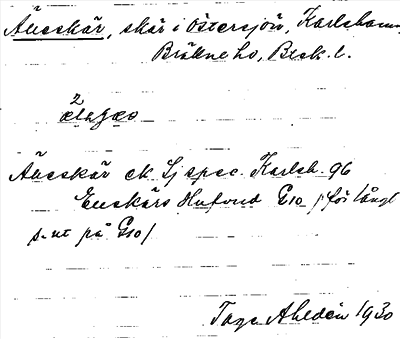 Äneskär, skär i Östersjön, Karlshamn,
Bräkne hd, Blek. l.
Äneskär ek Sj spec. Karlsh. 96
Enskärs Hufvud G10 /för långt
s. ut på G10/
Tage Ahldén 1930